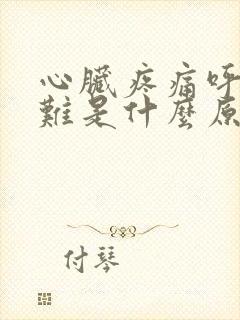 心臟疼痛呼
難是什麼原
付琴